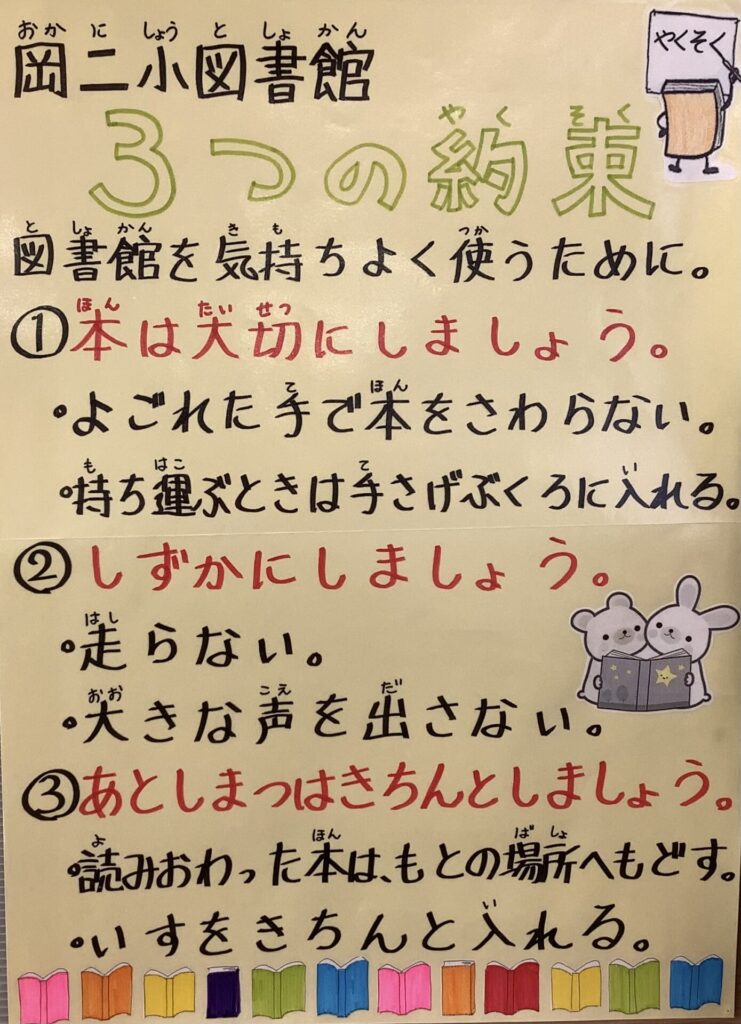 岡二小図書館
おかにしょうとしょかん
やくそく
3つの約束
やくそく
図書館を気持ちよく使うために。
としょかん きも つか
①本は大切にしましょう。
ほん たいせつ
・よごれた手で本をさわらない。
て ほん
・持ち運ぶときは手さげぶくろに入れる。
も はこ て い
②しずかにしましょう。
・走らない。
はし
・大きな声を出さない。
おお こえ だ
③あとしまつはきちんとしましょう。
・読みおわった本は、もとの場所へもどす。
よ ほん ばしょ
・いすをきちんと入れる。
い